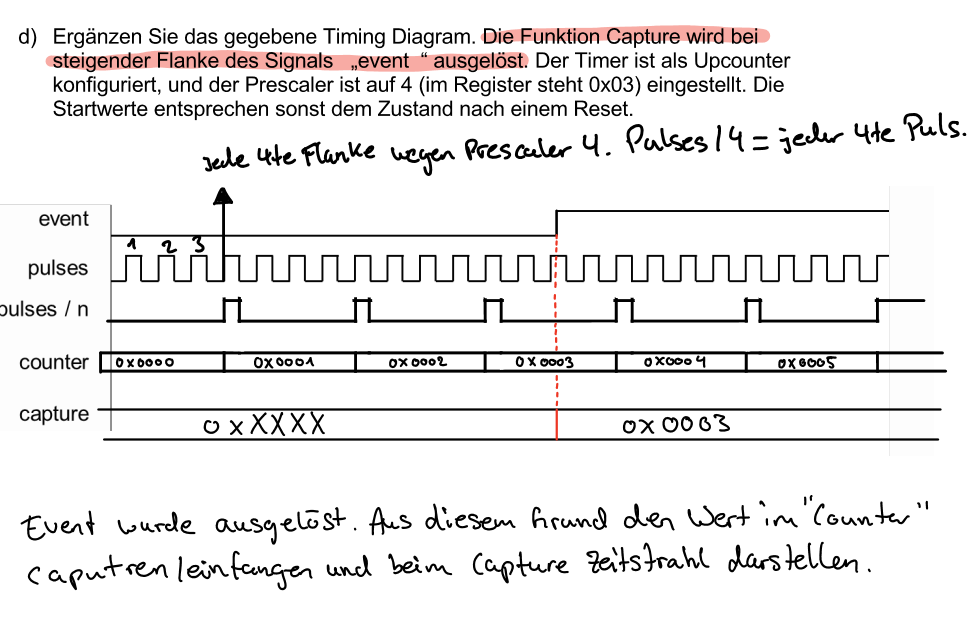 d) Ergänzen Sie das gegebene Timing Diagram. Die Funktion Capture wird bei
steigender Flanke des Signals „event “ ausgelöst. Der Timer ist als Upcounter
konfiguriert, und der Prescaler ist auf 4 (im Register steht 0x03) eingestellt. Die
Startwerte entsprechen sonst dem Zustand nach einem Reset.
Jede 4te Flanke wegen Prescaler 4. Pulses / 4 = jeder 4te Puls.
event
1 2 3
pulses
pulses / n
counter 0x0000 0x0001 0x0002 0x0003 0x0004 0x0005
capture 0xXXXX 0x0003
Event wurde ausgelöst. Aus diesem Grund den Wert im "Counter"
Caputren / einfangen und beim Capture Zeitstrahl darstellen.